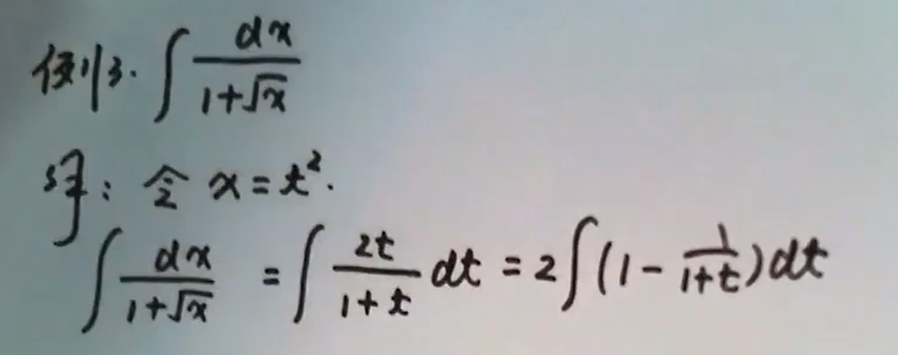 例3. ∫ dx/(1+√x)
解: 令 x = t².
∫ dx/(1+√x) = ∫ 2t/(1+t) dt = 2∫(1 - 1/(1+t))dt